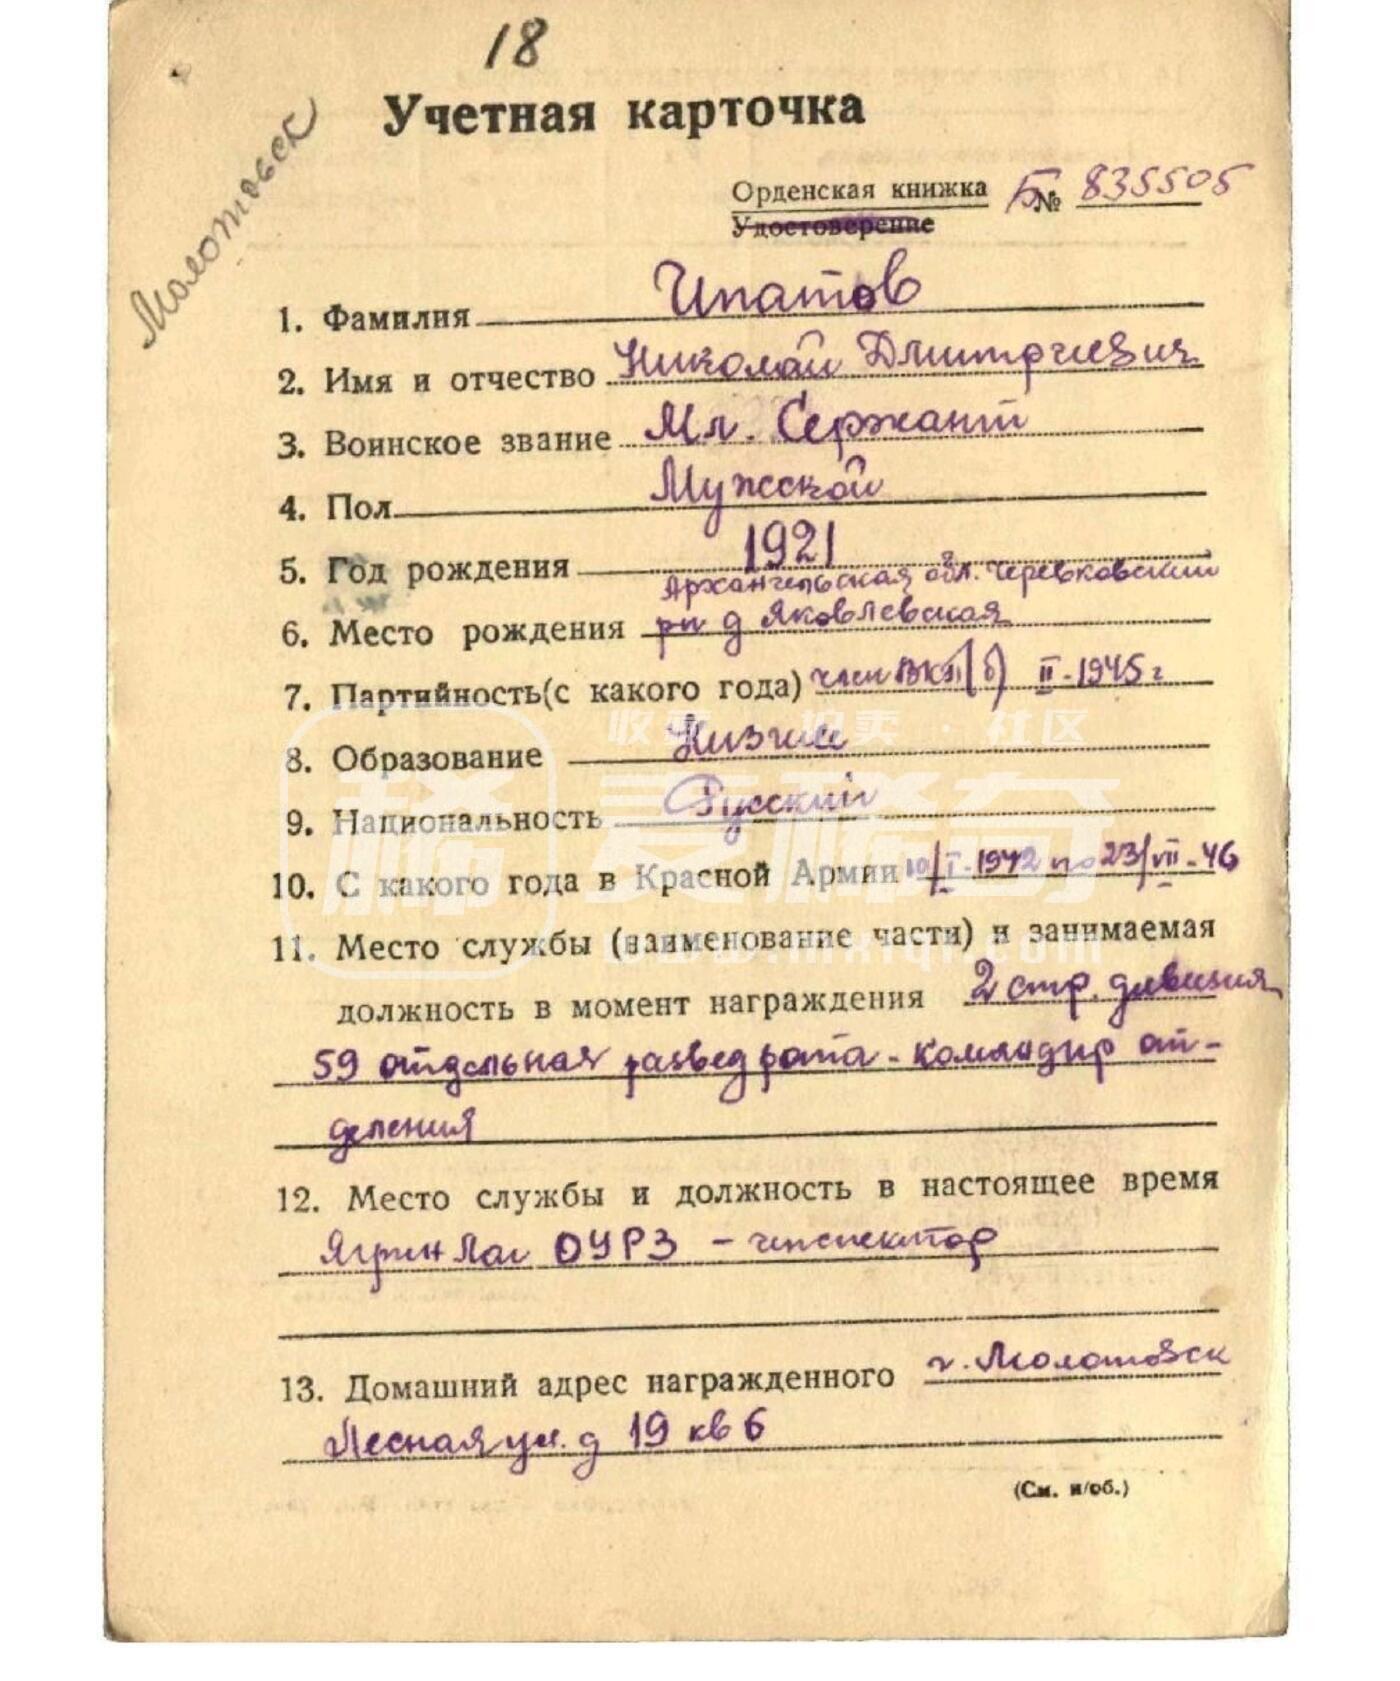 18
Учетная карточка
Молотовск
Орденская книжка Б № 835505
Удостоверение
1. Фамилия Ипатов
2. Имя и отчество Николай Дмитриевич
3. Воинское звание Мл. Сержант
4. Пол Мужской
5. Год рождения 1921
Архангельская обл. Черевковский
6. Место рождения рн д Яковлевская
7. Партийность (с какого года) член ВКП(б) II-1945 г
收卖 · 拍卖 · 社区
8. Образование Низшее
9. Национальность Русский
10. С какого года в Красной Армии 10/I-1942 по 23/VII-46
11. Место службы (наименование части) и занимаемая
должность в момент награждения 2 стр. дивизия
59 отдельная разведрота - командир от-
деления
12. Место службы и должность в настоящее время
Ягринлаг ОУРЗ - инспектор
13. Домашний адрес награжденного г. Молотовск
Лесная ул. д 19 кв 6
(См. н/об.)